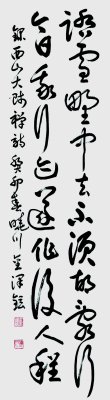 踏雪野中去不須胡亂行
今日我行迹遂作後人程
錄西山大師禪詩 癸卯春 曉川 金澤鉉